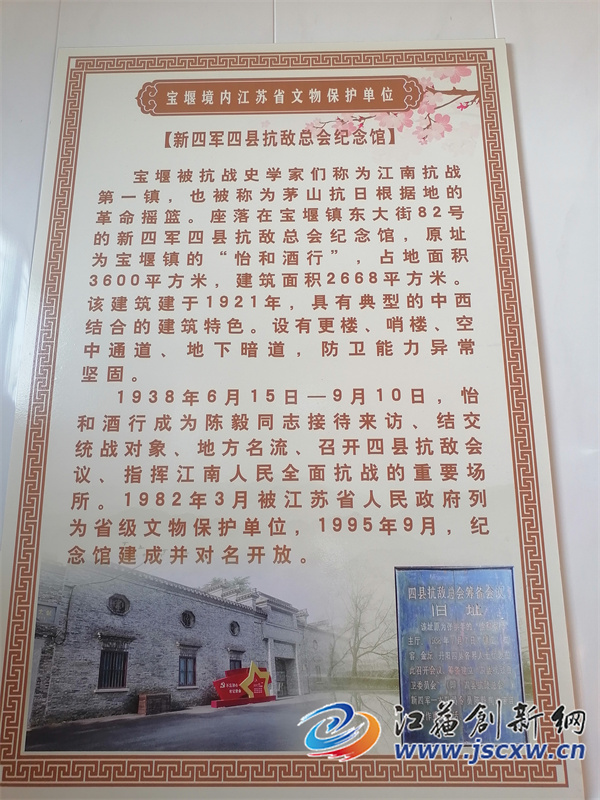 宝堰境内江苏省文物保护单位
【新四军四县抗敌总会纪念馆】
宝堰被抗战史学家们称为江南抗战
第一镇，也被称为茅山抗日根据地的
革命摇篮。座落在宝堰镇东大街82号
的新四军四县抗敌总会纪念馆，原址
为宝堰镇的“怡和酒行”，占地面积
3600平方米，建筑面积2668平方米。
该建筑建于1921年，具有典型的中西
结合的建筑特色。设有更楼、哨楼、空
中通道、地下暗道，防卫能力异常
坚固。
1938年6月15日—9月10日，怡
和酒行成为陈毅同志接待来访、结交
统战对象、地方名流、召开四县抗敌会
议、指挥江南人民全面抗战的重要场
所。1982年3月被江苏省人民政府列
为省级文物保护单位，1995年9月，纪
念馆建成并对名开放。
四县抗敌总会筹备会议
旧址
江苏创新网
www.jscxw.cn